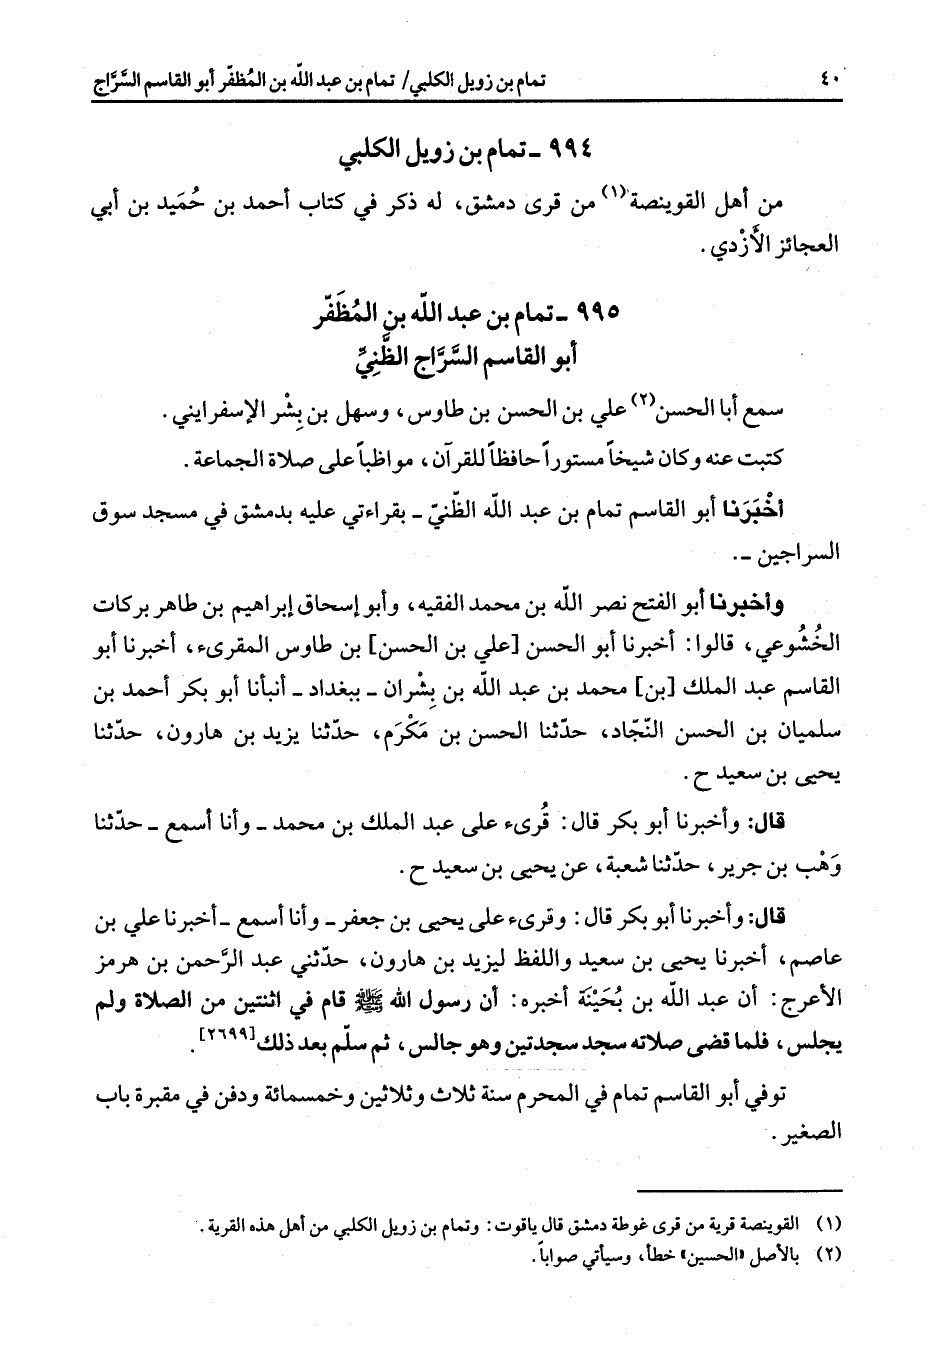 ٤٠ تمام بن زويل الكلبي/ تمام بن عبد اللّه بن المُظفّر أبو القاسم السَّرَّاج
٩٩٤ ـ تمام بن زويل الكلبي
من أهل القوينصة(١) من قرى دمشق، له ذكر في كتاب أحمد بن حُمَيد بن أبي
العجائز الأَزْدي.
٩٩٥ ـ تمام بن عبد اللّه بن المُظَفّر
أبو القاسم السَّرَّاج الظَّنِيِّ
سمع أبا الحسن(٢) علي بن الحسن بن طاوس، وسهل بن بِشْر الإسفرايني.
كتبت عنه وكان شيخاً مستوراً حافظاً للقرآن، مواظباً على صلاة الجماعة.
أخْبَرَنا أبو القاسم تمام بن عبد اللّه الظّنيّ ـ بقراءتي عليه بدمشق في مسجد سوق
السراجين ـ.
وأخبرنا أبو الفتح نصر اللّه بن محمد الفقيه، وأبو إسحاق إبراهيم بن طاهر بركات
الخُشُوعي، قالوا: أخبرنا أبو الحسن [علي بن الحسن] بن طاوس المقرىء، أخبرنا أبو
القاسم عبد الملك [بن] محمد بن عبد اللّه بن بِشْران ـ ببغداد ـ أنبأنا أبو بكر أحمد بن
سلميان بن الحسن النّجاد، حدّثنا الحسن بن مَكْرَم، حدّثنا يزيد بن هارون، حدّثنا
يحيى بن سعيد ح.
قال: وأخبرنا أبو بكر قال: قُرىء على عبد الملك بن محمد ـ وأنا أسمع ـ حدّثنا
وَهْب بن جرير، حدّثنا شعبة، عن يحيى بن سعيد ح.
قال: وأخبرنا أبو بكر قال: وقرىء على يحيى بن جعفر ـ وأنا أسمع ـ أخبرنا علي بن
عاصم، أخبرنا يحيى بن سعيد واللفظ ليزيد بن هارون، حدّثني عبد الرَّحمن بن هرمز
الأعرج: أن عبد اللّه بن بُحَيْنَة أخبره: أن رسول الله ﷺ قام في اثنتين من الصلاة ولم
يجلس، فلما قضى صلاته سجد سجدتين وهو جالس، ثم سلّم بعد ذلك[٢٦٩٩].
توفي أبو القاسم تمام في المحرم سنة ثلاث وثلاثين وخمسمائة ودفن في مقبرة باب
الصغير.
(١) القوينصة قرية من قرى غوطة دمشق قال ياقوت: وتمام بن زويل الكلبي من أهل هذه القرية.
(٢) بالأصل «الحسين» خطأ، وسيأتي صواباً.